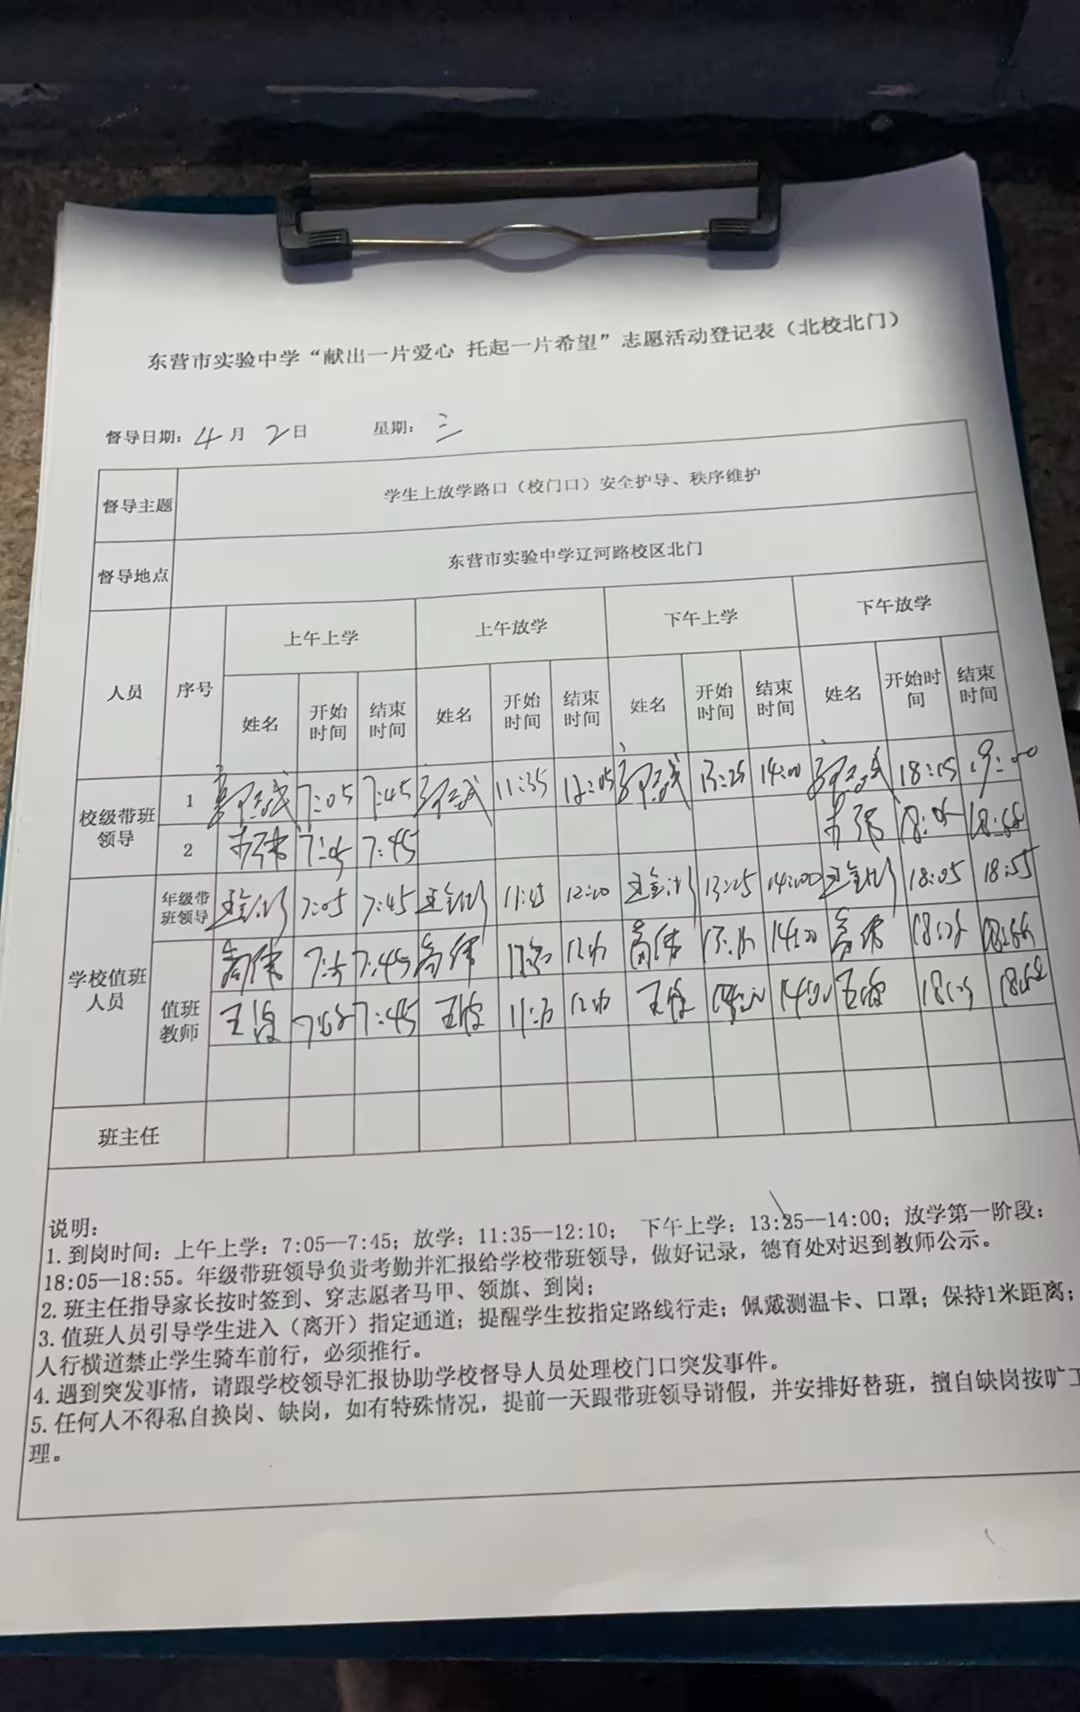 东营市实验中学“献出一片爱心 托起一片希望”志愿活动登记表（北校北门）
督导日期：4月2日 星期：三
督导主题 学生上放学路口（校门口）安全护导、秩序维护
督导地点 东营市实验中学辽河路校区北门
人员 序号 上午上学 上午放学 下午上学 下午放学
姓名 开始时间 结束时间 姓名 开始时间 结束时间 姓名 开始时间 结束时间 姓名 开始时间 结束时间
校级带班领导 1 7:05 7:45 11:35 12:05 13:25 14:00 18:05 19:00
2 7:05 7:45 18:05
学校值班人员 年级带班领导 7:05 7:45 12:00 13:25 14:00 18:05 18:55
值班教师 高伟 7:45 高伟 高伟 14:00 高伟
7:45
班主任
说明：
1. 到岗时间：上午上学：7:05—7:45；放学：11:35—12:10； 下午上学：13:25—14:00；放学第一阶段：
18:05—18:55。年级带班领导负责考勤并汇报给学校带班领导，做好记录，德育处对迟到教师公示。
2. 班主任指导家长按时签到、穿志愿者马甲、领旗、到岗；
3. 值班人员引导学生进入（离开）指定通道；提醒学生按指定路线行走；佩戴测温卡、口罩；保持1米距离；
人行横道禁止学生骑车前行，必须推行。
4. 遇到突发事情，请跟学校领导汇报协助学校督导人员处理校门口突发事件。
5. 任何人不得私自换岗、缺岗，如有特殊情况，提前一天跟带班领导请假，并安排好替班，擅自缺岗按旷工
理。